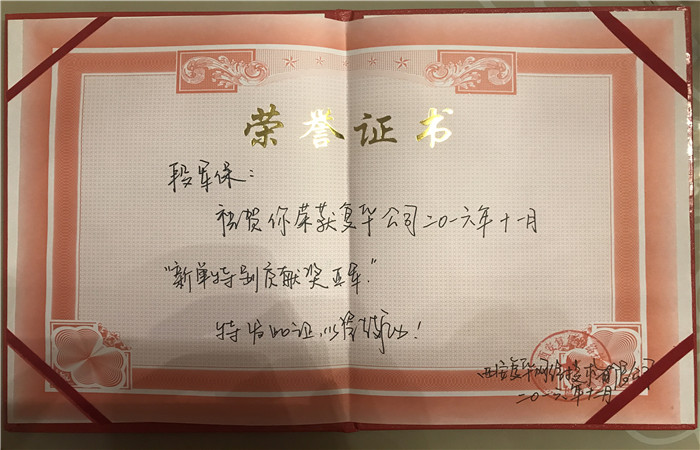 荣誉证书
段军保：
祝贺你荣获复华公司二〇一六年十一月
“新单特别贡献奖亚军”
特发此证，以资鼓励！
西安复华网络技术有限公司
二〇一六年十二月